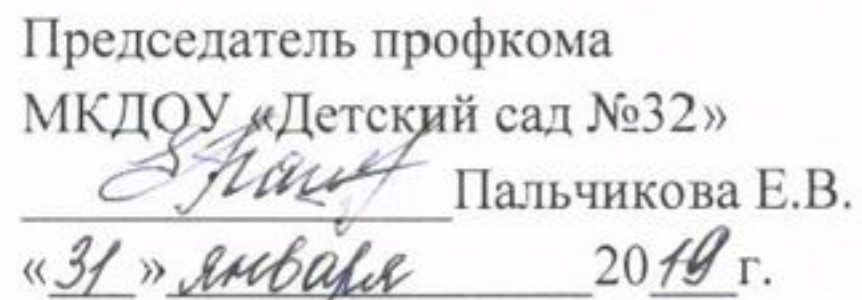 Председатель профкома
МКДОУ «Детский сад №32»
Пальчикова Е.В.
«31» января 2019 г.